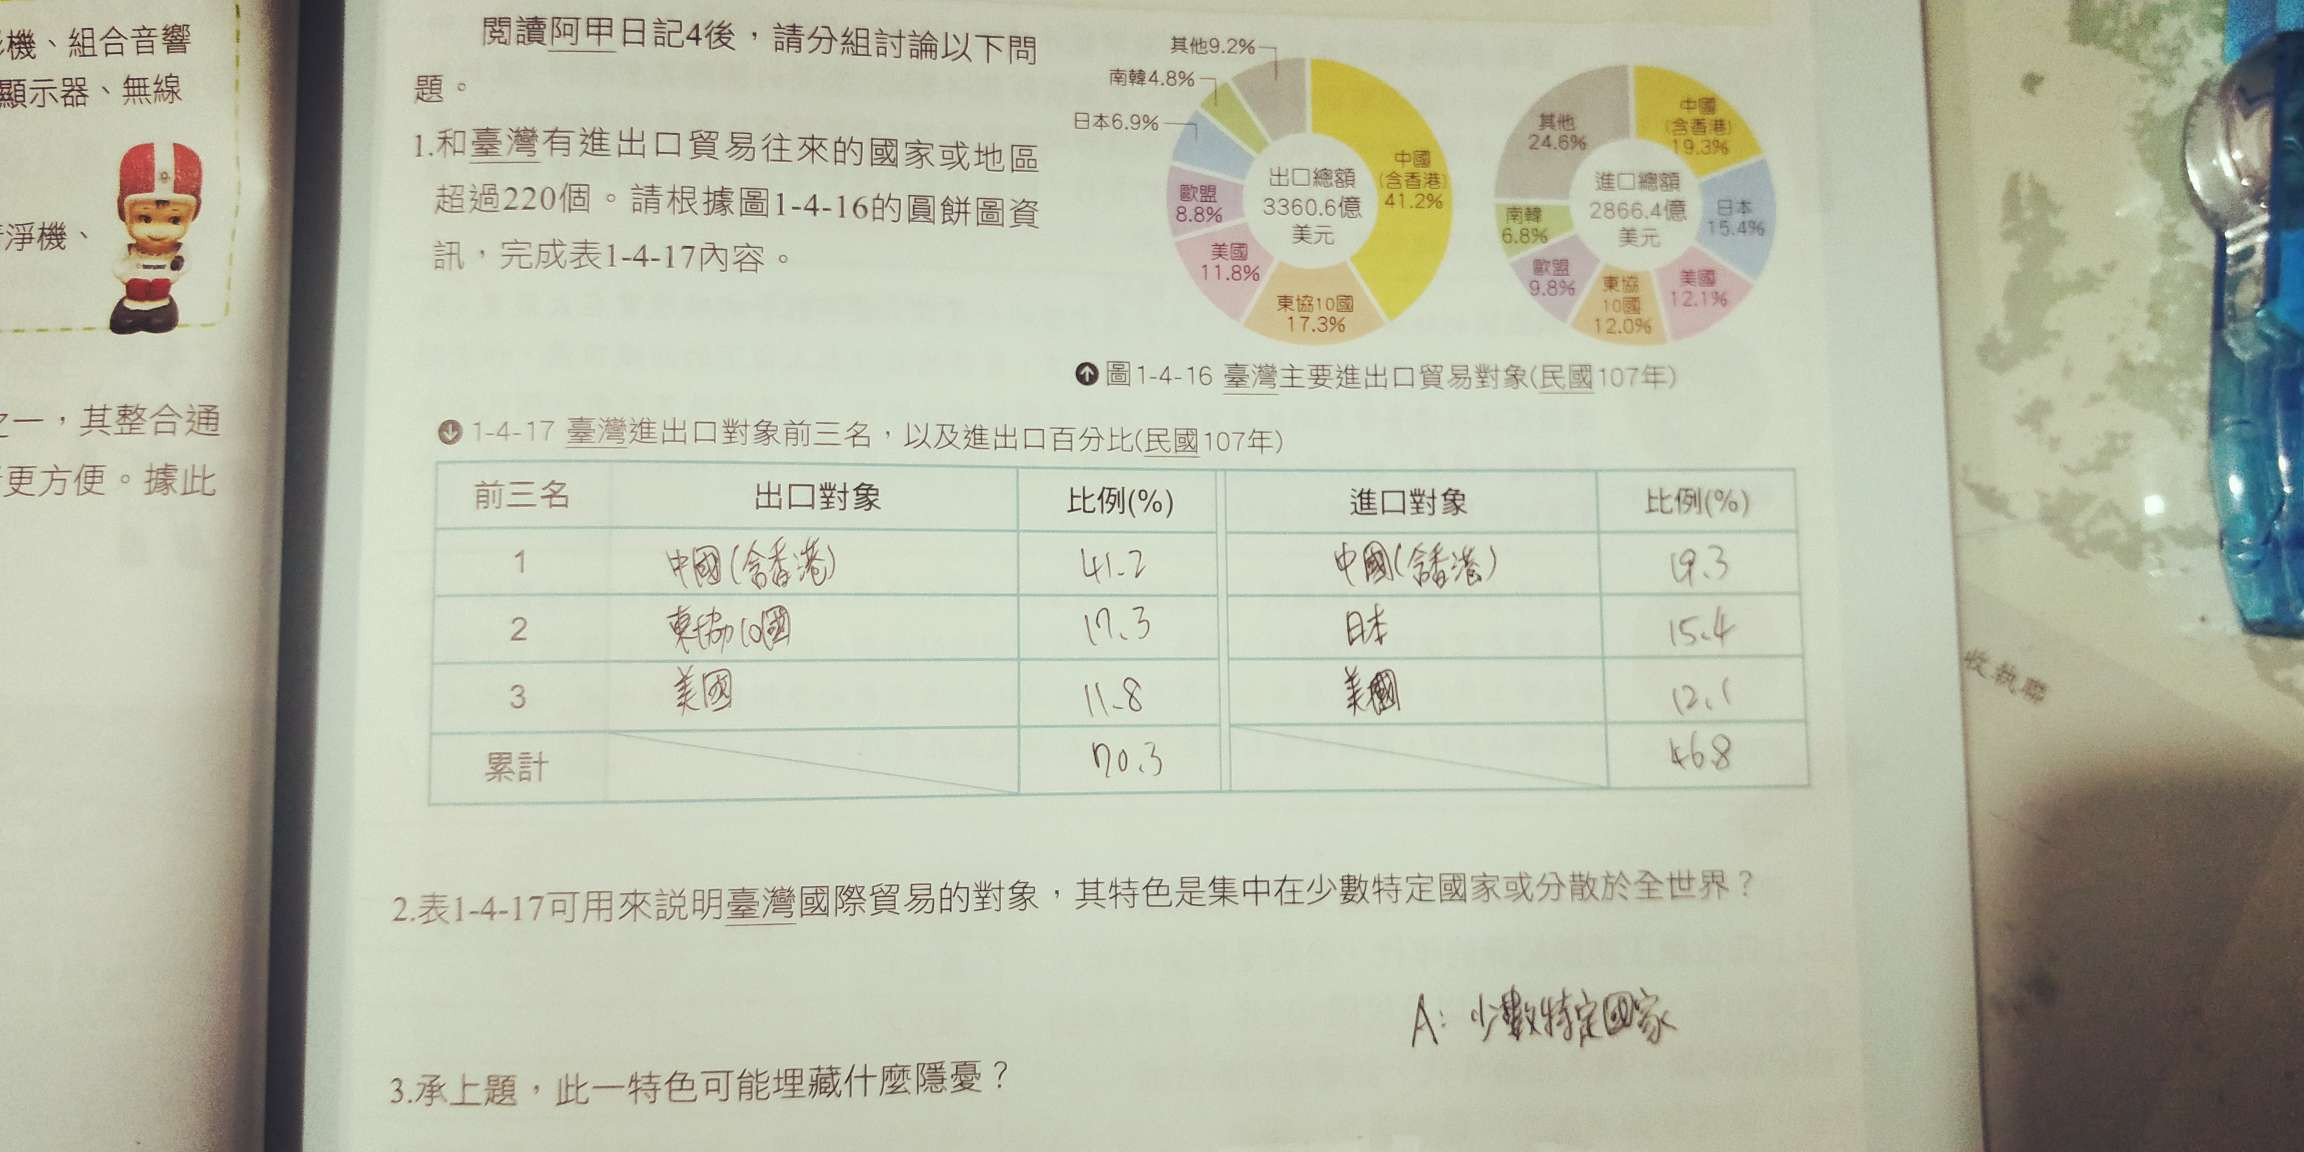 機、組合音響
顯示器、無線
淨機、
之一，其整合通
更方便。據此
閱讀阿甲日記4後，請分組討論以下問
題。
1.和臺灣有進出口貿易往來的國家或地區
超過220個。請根據圖1-4-16的圓餅圖資
訊，完成表1-4-17內容。
其他9.2%
南韓4.8%
日本6.9%
歐盟
8.8%
美國
11.8%
東協10國
17.3%
中國
(含香港)
41.2%
出口總額
3360.6億
美元
其他
24.6%
中國
(含香港)
19.3%
日本
15.4%
美國
12.1%
東協
10國
12.0%
歐盟
9.8%
南韓
6.8%
進口總額
2866.4億
美元
圖1-4-16 臺灣主要進出口貿易對象(民國107年)
1-4-17 臺灣進出口對象前三名，以及進出口百分比(民國107年)
前三名 出口對象 比例(%) 進口對象 比例(%)
1 中國(含香港) 41.2 中國(含香港) 19.3
2 東協10國 17.3 日本 15.4
3 美國 11.8 美國 12.1
累計 70.3 46.8
2.表1-4-17可用來說明臺灣國際貿易的對象，其特色是集中在少數特定國家或分散於全世界？
A: 少數特定國家
3.承上題，此一特色可能埋藏什麼隱憂？
收執聯